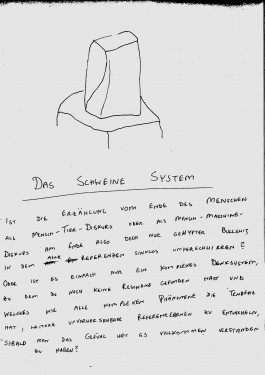 DAS SCHWEINE SYSTEM
IST DIE ERZÄHLUNG VOM ENDE DES MENSCHEN
ALS MENSCH-TIER-DISKURS ODER ALS MENSCH-MASCHINE-
DISKURS AM ENDE ALSO DOCH NUR GEHYPTER BULLSHIT,
IN DEM REFERENZEN SINNLOS UMHERSCHWIRREN?
ODER IST ES EINFACH NUR EIN KOMPLEXES DENKSYSTEM,
ZU DEM DU NOCH KEINE RESONANZ GEFUNDEN HAST UND
WELCHES WIE ALLE KOMPLEXEN PHÄNOMENE DIE TENDENZ
HAT, WEITERE UNVORHERSEHBARE REFERENZEBENEN ZU ENTWICKELN,
SOBALD MAN DAS GEFÜHL HAT ES VOLLKOMMEN VERSTANDEN
ZU HABEN?